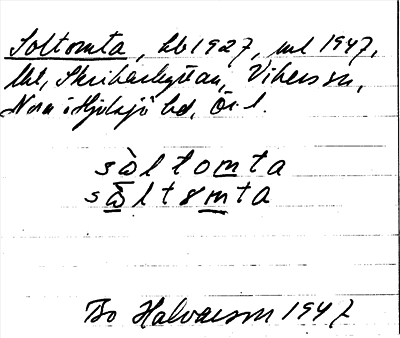 Soltomta, hb 1927, ml 1947,
lht, Skribarbytean, Vikers sn,
Nora o Hjulsjö bd, Ör l.
sòltomta
sὼlt8mta
Bo Halvarson 1947